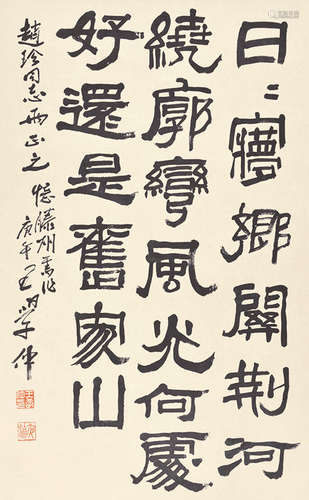 日〻㝱鄉關荊河
繞廓彎風光何處
好還是舊家山
趙珍同志正之
憶滕州舊作
庚午王學仲